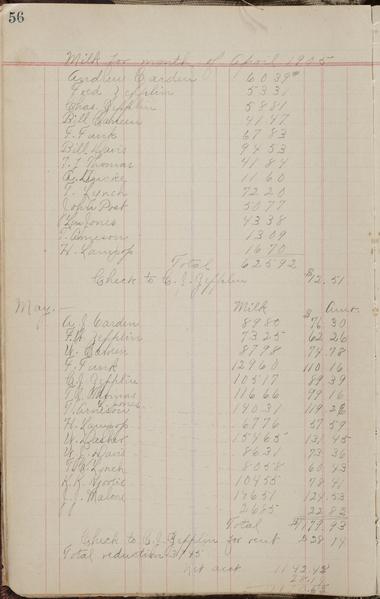 56
Milk for month of April 1905
Andrew Carden 6039
Fred Zepplin 5331
Chas. Zepplin 5881
Bill Camern 4147
F. Funk 6783
Bill Davis 9453
T. J. Thomas 4184
1160
T. Lynch 7220
John Post 5077
Jones 4338
T. Arneson 1309
H. Lampop 1670
Total 62592
Check to C. J. Zepplin $12.51
May. Milk Amt.
A. J. Carden 8980 $76 30
F. W. Zepplin 7325 62 26
W. Camern 8798 74 78
F. Funk 12960 110 16
C. J. Zepplin 10517 89 39
T. J. Thomas 11666 99 16
Jones
T. Arneson 14031 119 26
H. Lampop 6776 57 59
W. 15465 131 45
W. E. Davis 8631 73 36
T. Lynch 8058 60 43
10455 78 41
J. J. Malone 14651 124 53
2685 22 82
Total $1179.93
Check to C. J. Zepplin for rent $28 14
Total reduction 31 45
Net amt 1142.43
28.1